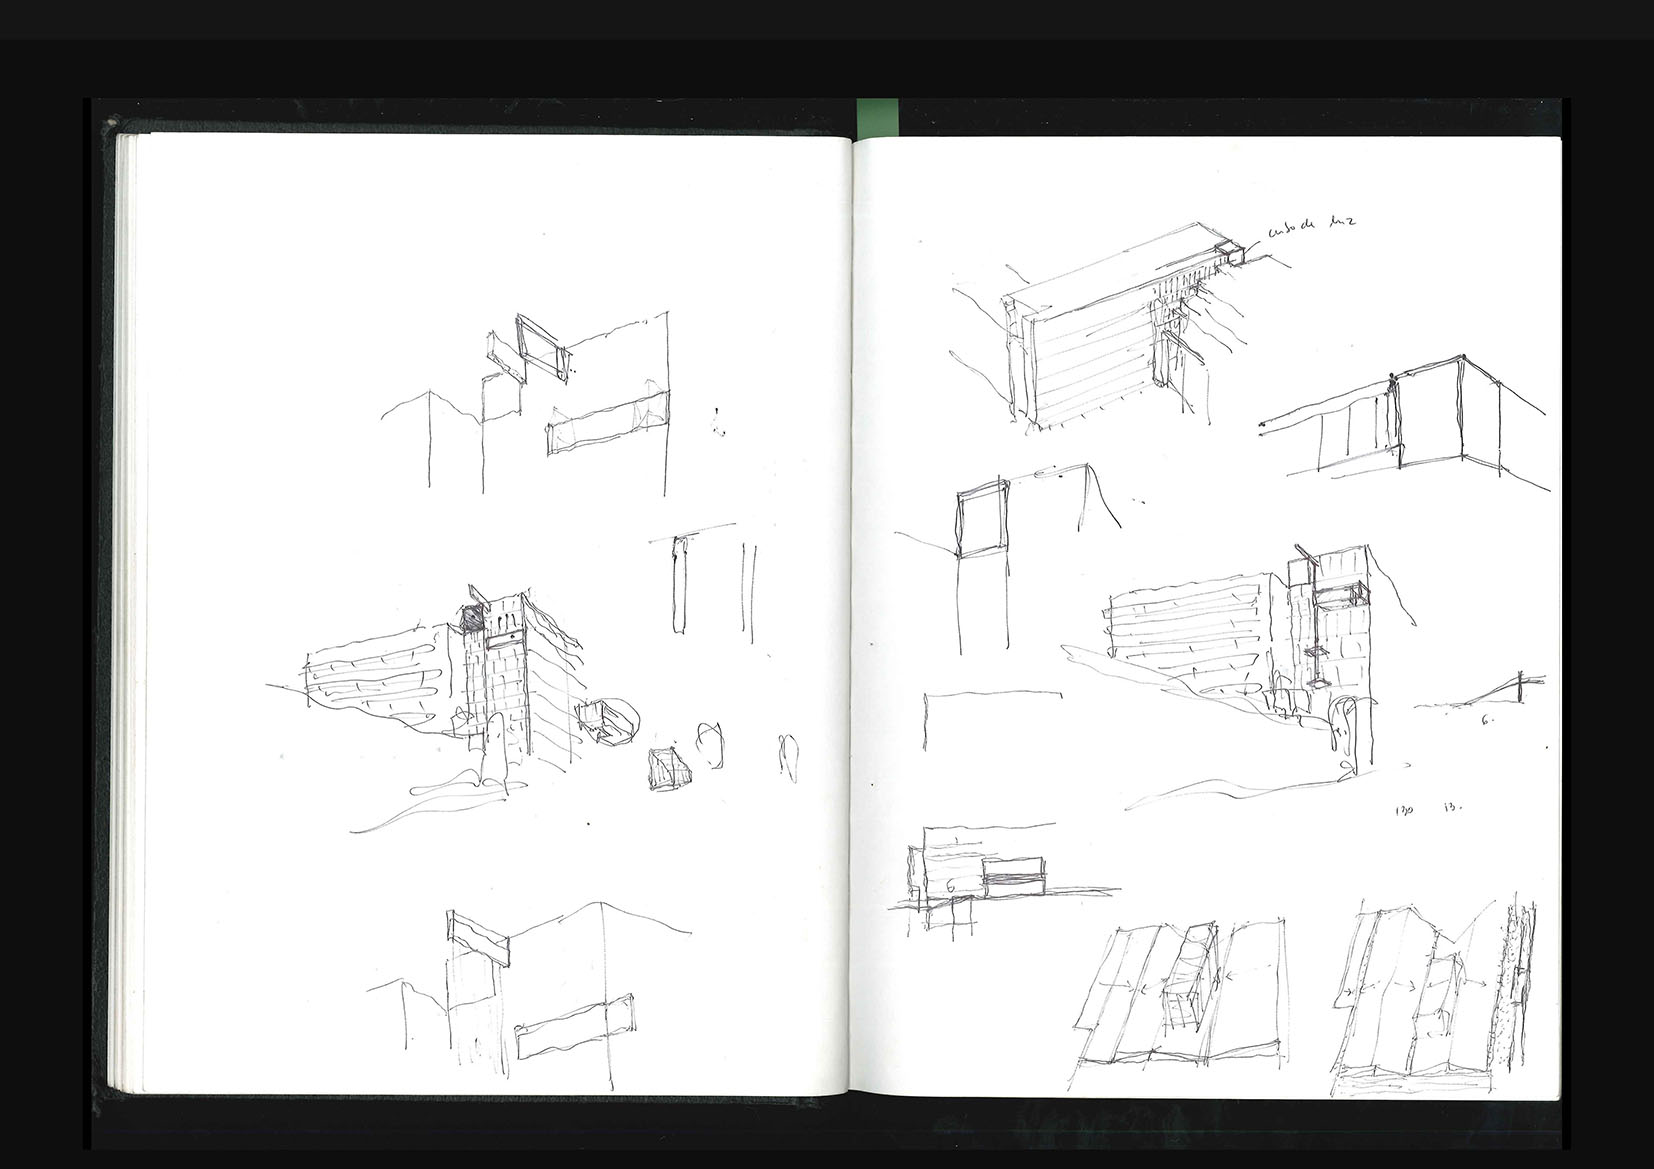 cubo de luz
6.
130 13.
6